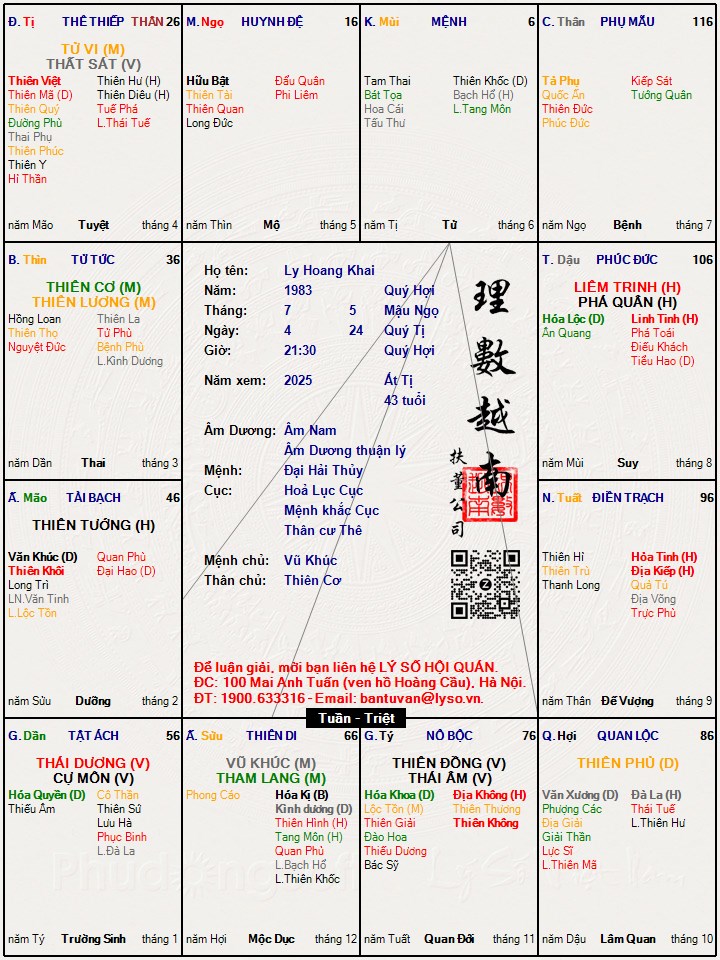 Đ. Tị THÊ THIẾP THÂN 26
TỬ VI (M)
THẤT SÁT (V)
Thiên Việt Thiên Hư (H)
Thiên Mã (D) Thiên Diêu (H)
Thiên Quý Tuế Phá
Đường Phù L.Thái Tuế
Thai Phụ
Thiên Phúc
Thiên Y
Hỉ Thần
năm Mão Tuyệt tháng 4
M. Ngọ HUYNH ĐỆ 16
Hữu Bật Đẩu Quân
Thiên Tài Phi Liêm
Thiên Quan
Long Đức
năm Thìn Mộ tháng 5
K. Mùi MỆNH 6
Tam Thai Thiên Khốc (D)
Bát Tọa Bạch Hổ (H)
Hoa Cái L.Tang Môn
Tấu Thư
năm Tị Tử tháng 6
C. Thân PHỤ MẪU 116
Tả Phụ Kiếp Sát
Quốc Ấn Tướng Quân
Thiên Đức
Phúc Đức
năm Ngọ Bệnh tháng 7
B. Thìn TỬ TỨC 36
THIÊN CƠ (M)
THIÊN LƯƠNG (M)
Hồng Loan Thiên La
Thiên Thọ Tử Phù
Nguyệt Đức Bệnh Phù
L.Kình Dương
năm Dần Thai tháng 3
Họ tên: Ly Hoang Khai
Năm: 1983 Quý Hợi
Tháng: 7 5 Mậu Ngọ
Ngày: 4 24 Quý Tị
Giờ: 21:30 Quý Hợi
Năm xem: 2025 Ất Tị
43 tuổi
Âm Dương: Âm Nam
Âm Dương thuận lý
Mệnh: Đại Hải Thủy
Cục: Hoả Lục Cục
Mệnh khắc Cục
Thân cư Thê
Mệnh chủ: Vũ Khúc
Thân chủ: Thiên Cơ
理數越南
扶董公司
Để luận giải, mời bạn liên hệ LÝ SỐ HỘI QUÁN.
ĐC: 100 Mai Anh Tuấn (ven hồ Hoàng Cầu), Hà Nội.
ĐT: 1900.633316 - Email: bantuvan@lyso.vn.
Tuần - Triệt
T. Dậu PHÚC ĐỨC 106
LIÊM TRINH (H)
PHÁ QUÂN (H)
Hóa Lộc (D) Linh Tinh (H)
Ân Quang Phá Toái
Điếu Khách
Tiểu Hao (D)
năm Mùi Suy tháng 8
Ấ. Mão TÀI BẠCH 46
THIÊN TƯỚNG (H)
Văn Khúc (D) Quan Phù
Thiên Khôi Đại Hao (D)
Long Trì
LN.Văn Tinh
L.Lộc Tồn
năm Sửu Dưỡng tháng 2
N. Tuất ĐIỀN TRẠCH 96
Thiên Hỉ Hỏa Tinh (H)
Thiên Trù Địa Kiếp (H)
Thanh Long Quả Tú
Địa Võng
Trực Phù
năm Thân Đế Vượng tháng 9
G. Dần TẬT ÁCH 56
THÁI DƯƠNG (V)
CỰ MÔN (V)
Hóa Quyền (D) Cô Thần
Thiếu Âm Thiên Sứ
Lưu Hà
Phục Binh
L.Đà La
năm Tý Trường Sinh tháng 1
Ấ. Sửu THIÊN DI 66
VŨ KHÚC (M)
THAM LANG (M)
Phong Cáo Hóa Kị (B)
Kình dương (D)
Thiên Hình (H)
Tang Môn (H)
Quan Phủ
L.Bạch Hổ
L.Thiên Khốc
năm Hợi Mộc Dục tháng 12
G. Tý NÔ BỘC 76
THIÊN ĐỒNG (V)
THÁI ÂM (V)
Hóa Khoa (D) Địa Không (H)
Lộc Tồn (M) Thiên Thương
Thiên Giải Thiên Không
Đào Hoa
Thiếu Dương
Bác Sỹ
năm Tuất Quan Đới tháng 11
Q. Hợi QUAN LỘC 86
THIÊN PHỦ (D)
Văn Xương (D) Đà La (H)
Phượng Các Thái Tuế
Địa Giải L.Thiên Hư
Giải Thần
Lực Sĩ
L.Thiên Mã
năm Dậu Lâm Quan tháng 10